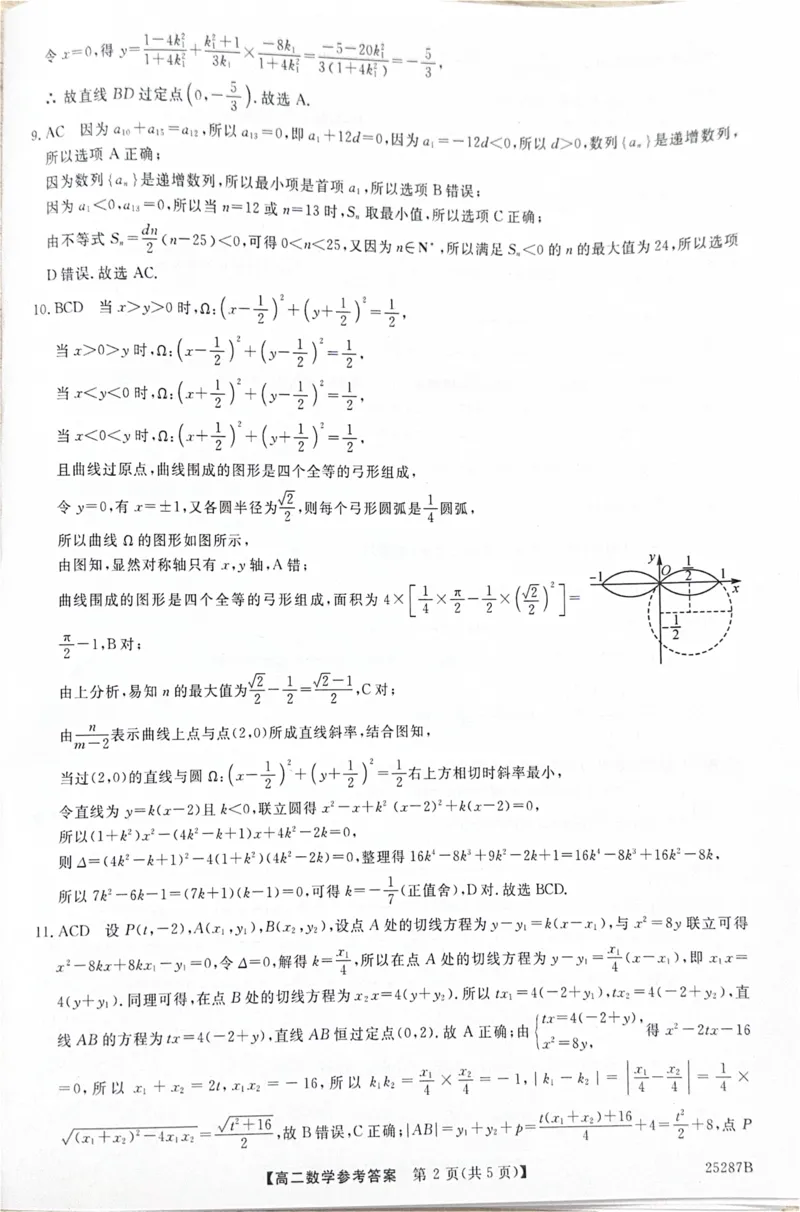 令 x=0,得 y=\frac{1-4k_1^2}{1+4k_1^2}+\frac{k_1^2+1}{3k_1}×\frac{-8k_1}{1+4k_1^2}=\frac{-5-20k_1^2}{3(1+4k_1^2)}=-\frac{5}{3},
∴ 故直线 BD 过定点(0,-\frac{5}{3}).故选 A.
9.AC 因为 a₁₀+a₁₅=a₁₂,所以 a₁₃=0,即 a₁+12d=0,因为 a₁=-12d<0,所以 d>0,数列{aₙ}是递增数列,
所以选项 A 正确;
因为数列{aₙ}是递增数列,所以最小项是首项 a₁,所以选项 B 错误;
因为 a₁<0,a₁₃=0,所以当 n=12 或 n=13 时,Sₙ 取最小值,所以选项 C 正确;
由不等式 Sₙ=\frac{dn}{2}(n-25)<0,可得 0<n<25,又因为 n∈N*,所以满足 Sₙ<0 的 n 的最大值为 24,所以选项
D 错误.故选 AC.
10.BCD 当 x>y>0 时,Ω:(x-\frac{1}{2})²+(y+\frac{1}{2})²=\frac{1}{2},
当 x>0>y 时,Ω:(x-\frac{1}{2})²+(y-\frac{1}{2})²=\frac{1}{2},
当 x<y<0 时,Ω:(x+\frac{1}{2})²+(y-\frac{1}{2})²=\frac{1}{2},
当 x<0<y 时,Ω:(x+\frac{1}{2})²+(y+\frac{1}{2})²=\frac{1}{2},
且曲线过原点,曲线围成的图形是四个全等的弓形组成,
令 y=0,有 x=±1,又各圆半径为\frac{\sqrt{2}}{2},则每个弓形圆弧是\frac{1}{4}圆弧,
所以曲线 Ω 的图形如图所示,
由图知,显然对称轴只有 x,y 轴,A 错;
y
-1
O
\frac{1}{2}
1
x
-\frac{1}{2}
曲线围成的图形是四个全等的弓形组成,面积为 4×[\frac{1}{4}×\frac{π}{2}-\frac{1}{2}×(\frac{\sqrt{2}}{2})²]=
\frac{π}{2}-1,B 对;
由上分析,易知 n 的最大值为\frac{\sqrt{2}}{2}-\frac{1}{2}=\frac{\sqrt{2}-1}{2},C 对;
由\frac{n}{m-2}表示曲线上点与点(2,0)所成直线斜率,结合图知,
当过(2,0)的直线与圆 Ω:(x-\frac{1}{2})²+(y+\frac{1}{2})²=\frac{1}{2}右上方相切时斜率最小,
令直线为 y=k(x-2)且 k<0,联立圆得 x²-x+k²(x-2)²+k(x-2)=0,
所以(1+k²)x²-(4k²-k+1)x+4k²-2k=0,
则 Δ=(4k²-k+1)²-4(1+k²)(4k²-2k)=0,整理得 16k⁴-8k³+9k²-2k+1=16k⁴-8k³+16k²-8k,
所以 7k²-6k-1=(7k+1)(k-1)=0,可得 k=-\frac{1}{7}(正值舍),D 对.故选 BCD.
11.ACD 设 P(t,-2),A(x₁,y₁),B(x₂,y₂),设点 A 处的切线方程为 y-y₁=k(x-x₁),与 x²=8y 联立可得
x²-8kx+8kx₁-y₁=0,令 Δ=0,解得 k=\frac{x_1}{4},所以在点 A 处的切线方程为 y-y₁=\frac{x_1}{4}(x-x₁),即 x₁x=
4(y+y₁).同理可得,在点 B 处的切线方程为 x₂x=4(y+y₂).所以 tx₁=4(-2+y₁),tx₂=4(-2+y₂),直
线 AB 的方程为 tx=4(-2+y),直线 AB 恒过定点(0,2).故 A 正确;由{tx=4(-2+y), x²=8y, 得 x²-2tx-16
=0,所以 x₁+x₂=2t,x₁x₂=-16,所以 k₁k₂=\frac{x_1}{4}×\frac{x_2}{4}=-1,|k₁-k₂|=|\frac{x_1}{4}-\frac{x_2}{4}|=\frac{1}{4}×
\sqrt{(x_1+x_2)^2-4x_1x_2}=\frac{\sqrt{t^2+16}}{2},故 B 错误,C 正确;|AB|=y₁+y₂+p=\frac{t(x_1+x_2)+16}{4}+4=\frac{t^2}{2}+8,点 P
【高二数学参考答案 第 2 页(共 5 页)】
25287B